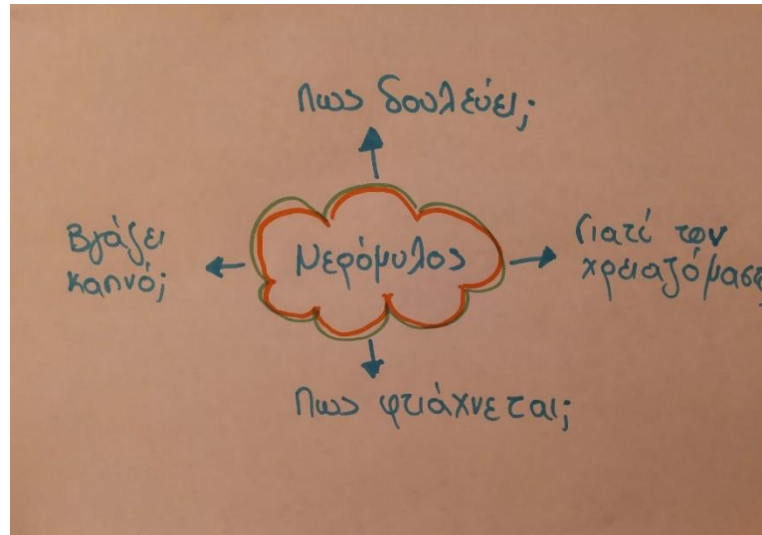 Πως δουλεύει;
Βγάζει
καπνό;
Νερόμυλος
Γιατί τον
χρειαζόμαστε
Πως φτιάχνεται;